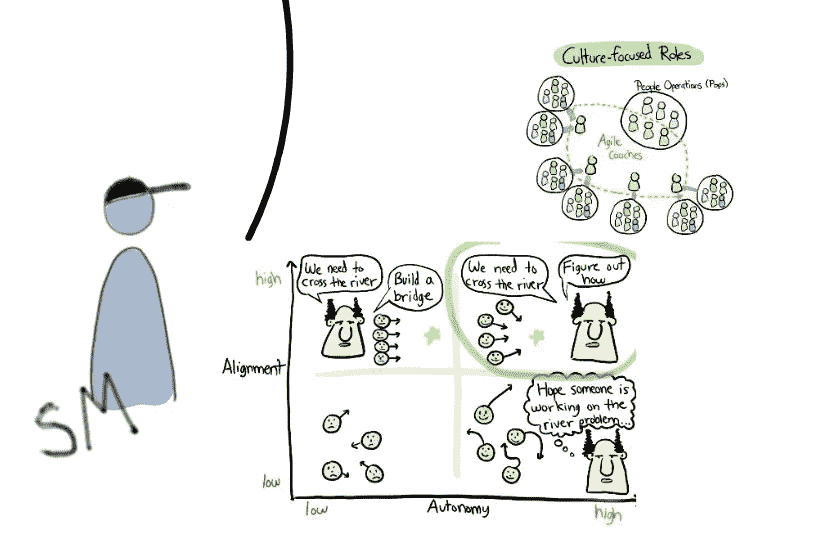 Culture-focused Roles
People Operations (Pops)
Agile
Coaches
We need to
cross the river
Build a
bridge
We need to
cross the river
Figure out
how
high
Alignment
Hope someone is
working on the
river problem...
low
low
Autonomy
high
SM